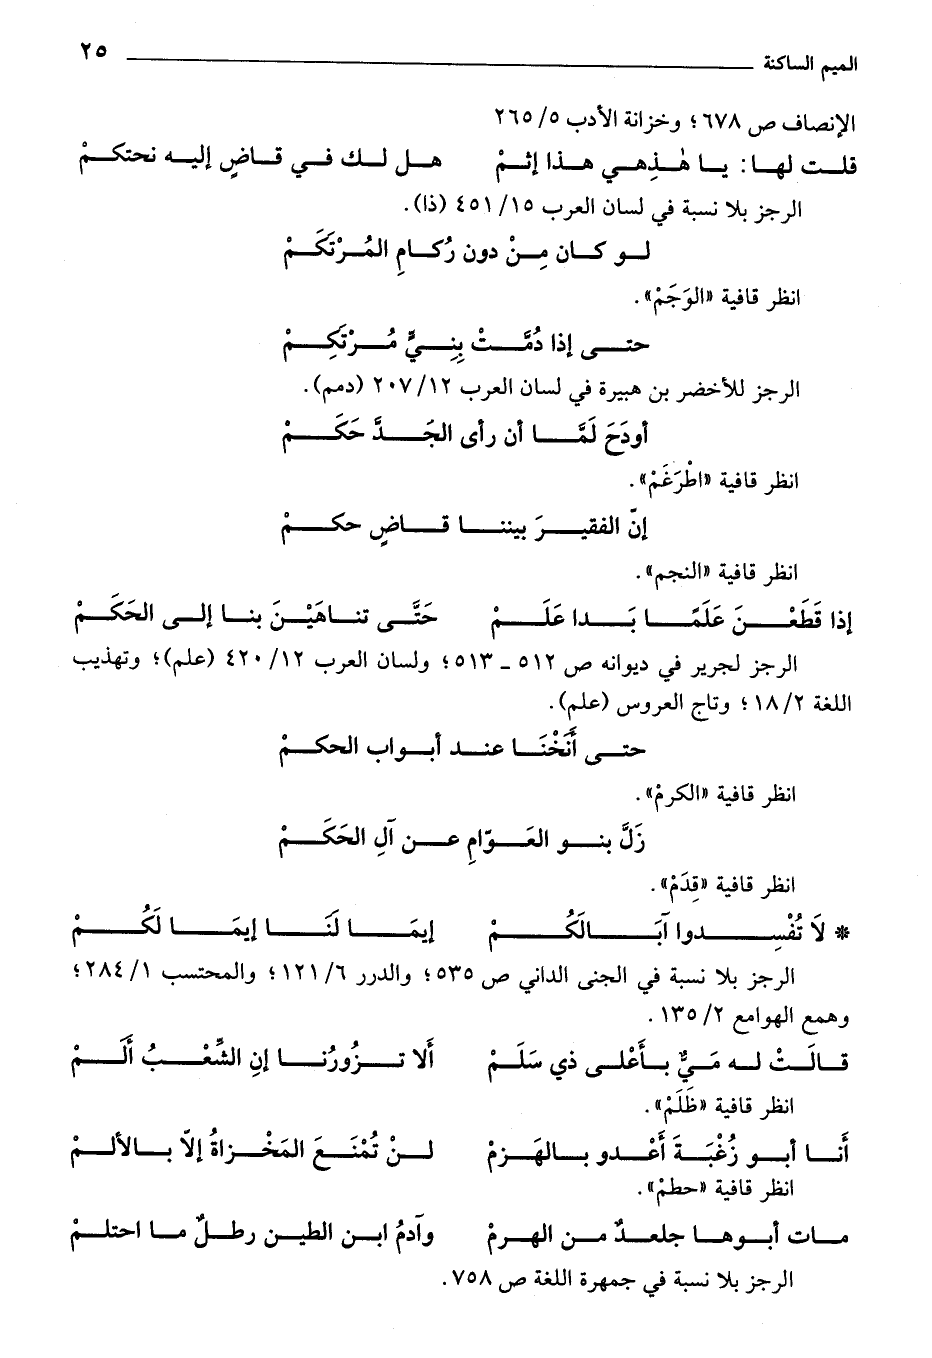 الميم الساكنة ٢٥
الإنصاف ص ٦٧٨؛ وخزانة الأدب ٥/ ٢٦٥
قلت لها: يا هٰذِهي هذا إثمْ هل لك في قاضٍ إليه نحتكمْ
الرجز بلا نسبة في لسان العرب ١٥/ ٤٥١ (ذا).
لو كان مِنْ دون رُكامِ المُرْتَكَمْ
انظر قافية «الوَجَمْ».
حتى إذا دُمَّتْ بِنِيٍّ مُرْتَكِمْ
الرجز للأخضر بن هبيرة في لسان العرب ١٢/ ٢٠٧ (دمم).
أودَحَ لَمَّا أن رأى الجَدَّ حَكَمْ
انظر قافية «اطْرَغَمْ».
إنّ الفقيرَ بيننا قاضٍ حكمْ
انظر قافية «النجم».
إذا قَطَعْنَ عَلَمًا بَدا عَلَمْ حَتَّى تناهَيْنَ بنا إلى الحَكَمْ
الرجز لجرير في ديوانه ص ٥١٢ ـ ٥١٣؛ ولسان العرب ١٢/ ٤٢٠ (علم)؛ وتهذيب
اللغة ٢/ ١٨؛ وتاج العروس (علم).
حتى أَنَخْنَا عند أبواب الحكمْ
انظر قافية «الكرمْ».
زَلَّ بنو العَوّامِ عن آلِ الحَكَمْ
انظر قافية «قِدَمْ».
* لَا تُفْسِدوا آبَالَكُمْ إيمَا لَنَا إيمَا لَكُمْ
الرجز بلا نسبة في الجنى الداني ص ٥٣٥؛ والدرر ٦/ ١٢١؛ والمحتسب ١/ ٢٨٤؛
وهمع الهوامع ٢/ ١٣٥.
قالَتْ له مَيٌّ بأَعْلى ذي سَلَمْ أَلا تزُورُنا إنِ الشِّعْبُ أَلَمْ
انظر قافية «ظَلَمْ».
أَنا أبو زُغْبَةَ أَعْدو بالهَزمْ لنْ تُمْنَعَ المَخْزاةُ إلاّ بالألمْ
انظر قافية «حطمْ».
مات أبوها جلعدٌ من الهرمْ وآدمُ ابن الطين رطلٌ ما احتلمْ
الرجز بلا نسبة في جمهرة اللغة ص ٧٥٨.